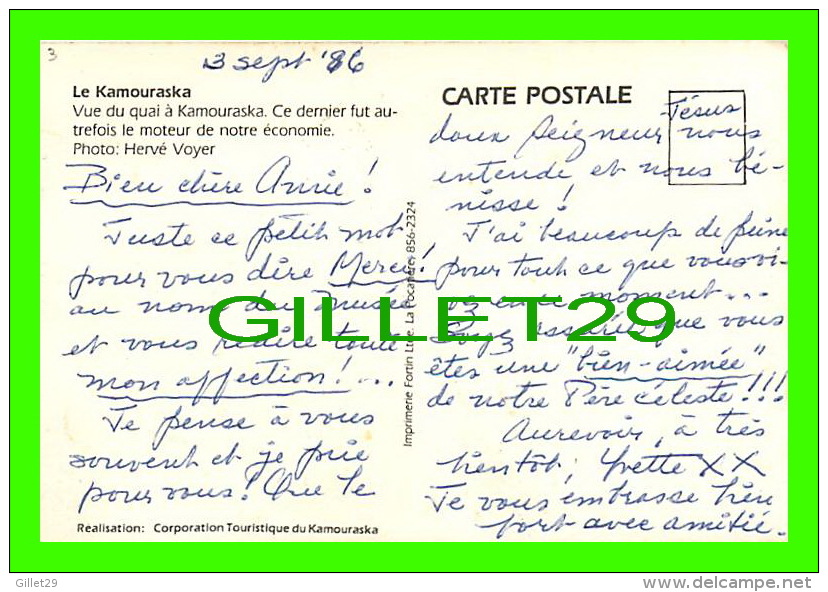 3
3 sept '86
Le Kamouraska
Vue du quai à Kamouraska. Ce dernier fut au-
trefois le moteur de notre économie.
Photo: Hervé Voyer
Bien chère Annie!
Juste ce petit mot
pour vous dire Merci!
au nom du Musée
et vous redire toute
mon affection!...
Je pense à vous
souvent et je prie
pour vous! Que le
Realisation: Corporation Touristique du Kamouraska
Imprimerie Fortin Ltée. La Pocatière, 856-2324
CARTE POSTALE
Jésus
doux Seigneur nous
entende et nous bé-
nisse!
J'ai beaucoup de peine
pour tout ce que vous vi-
vez en ce moment...
Soyez assurée que vous
êtes une "bien-aimée"
de notre Père céleste!!!
Aurevoir, à très
bientôt, Yvette XX
Je vous embrasse bien
fort avec amitié.
GILLET29
Gillet29
delcampe.net